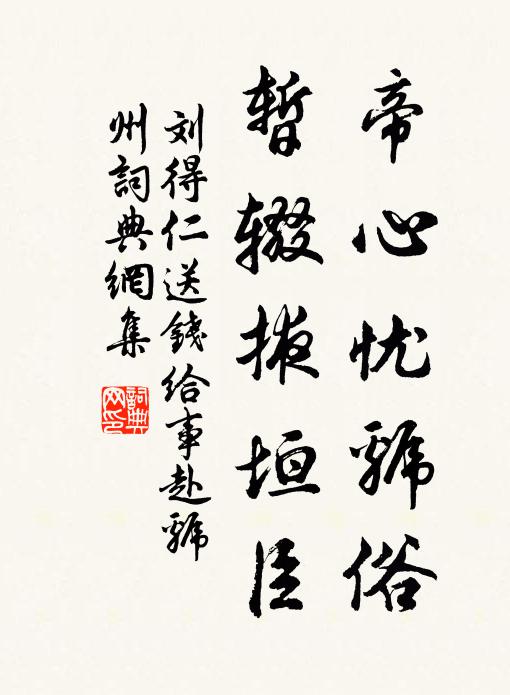 帝心忧虢俗
暂辍掖垣臣
刘得仁送錢给事赴虢
州詞典網集
詞典网印